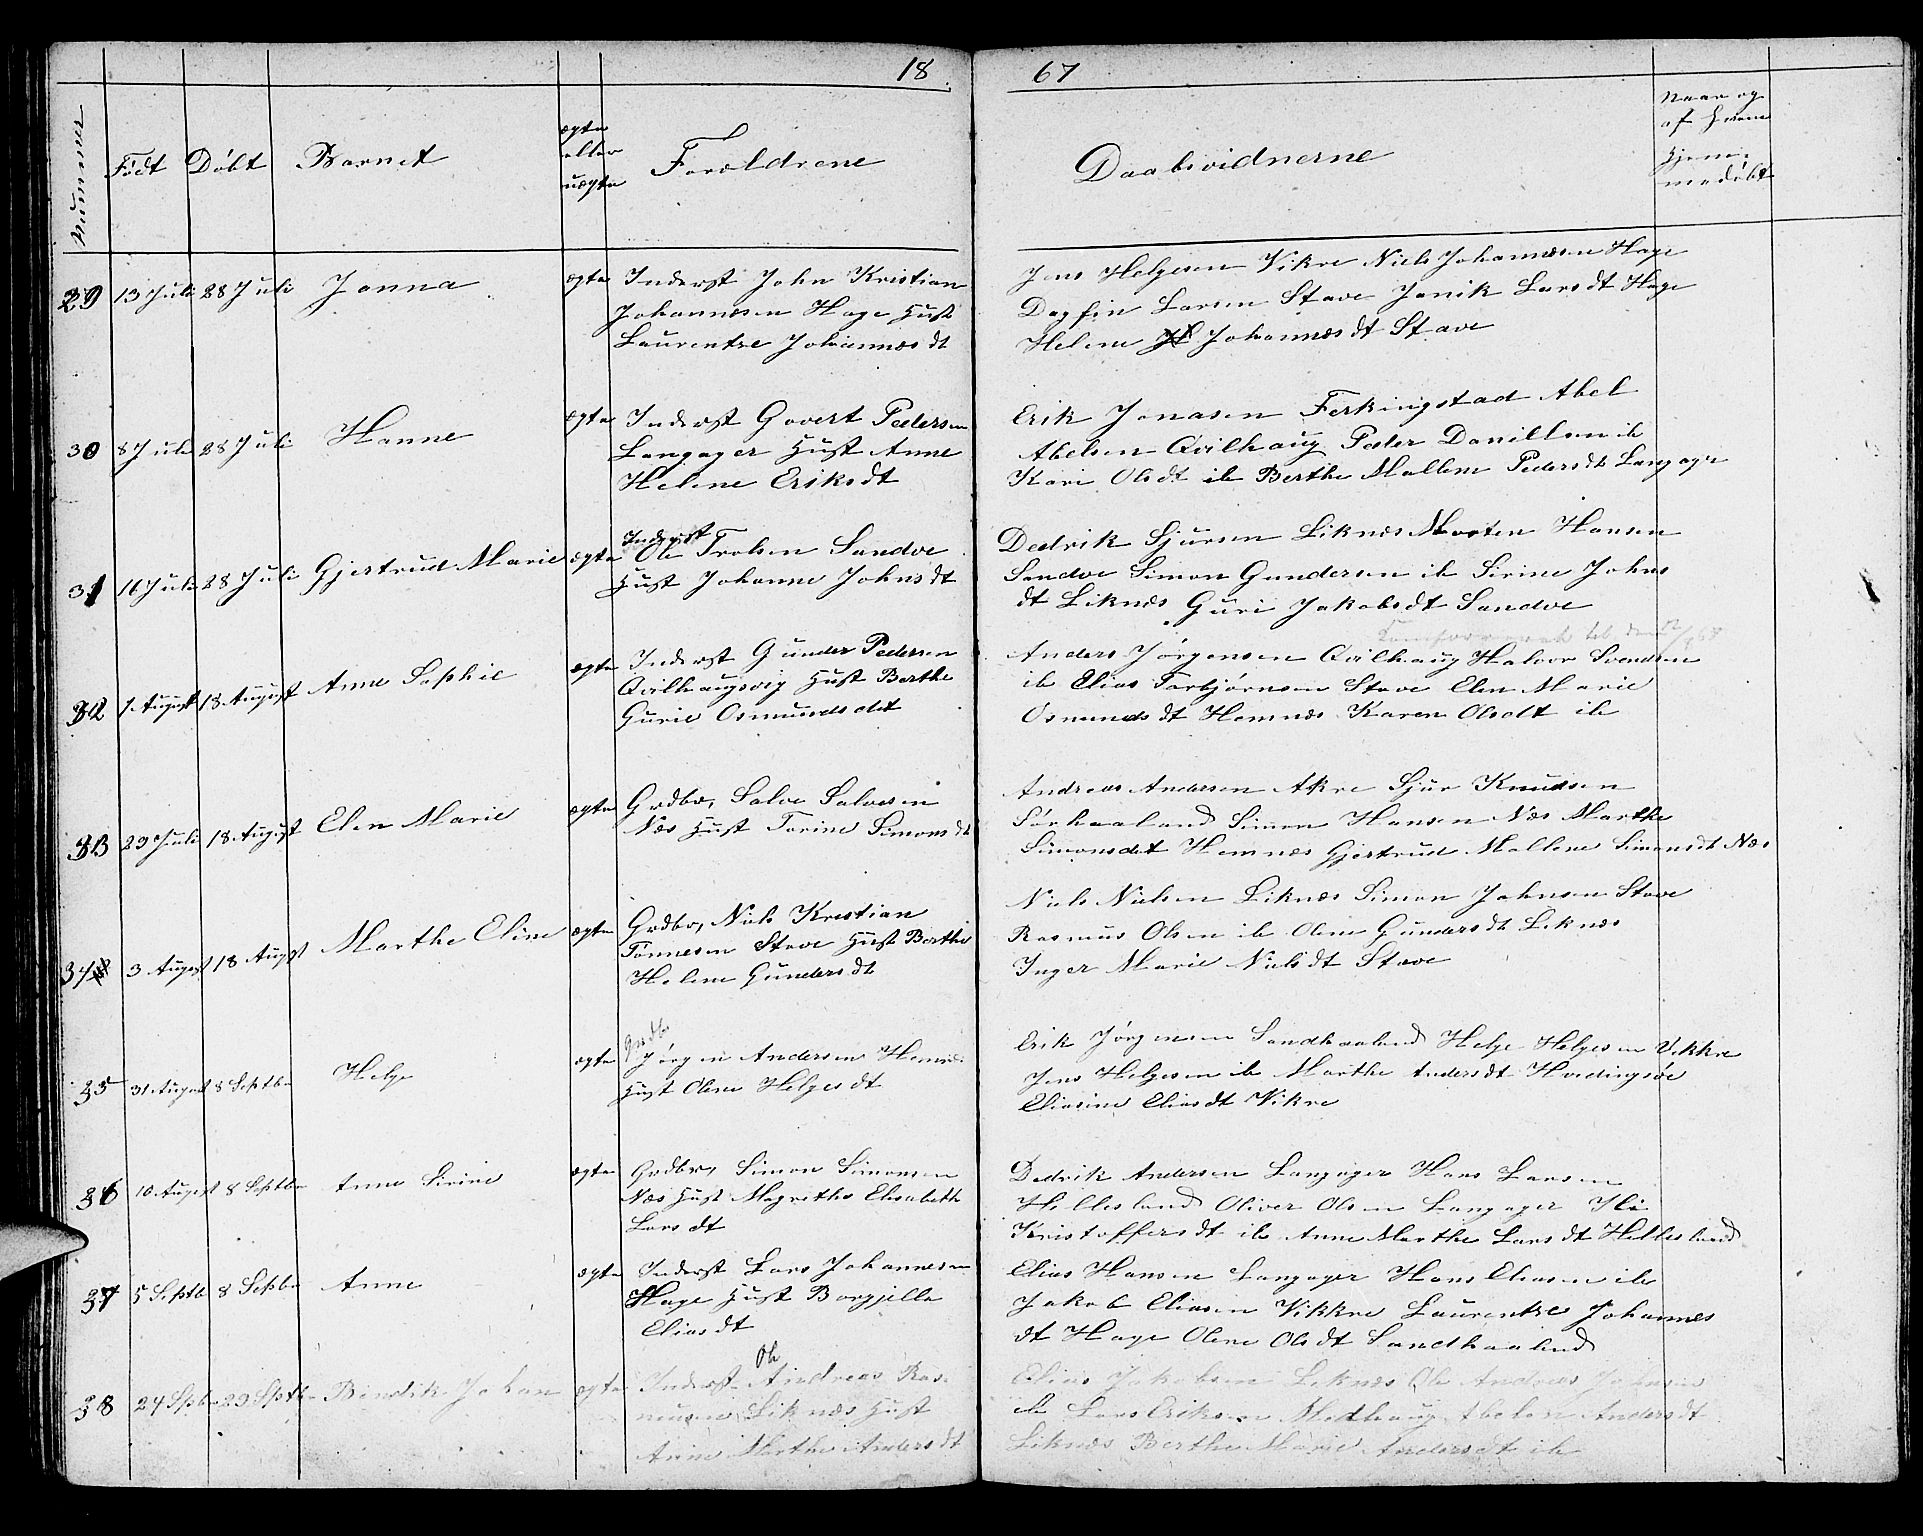 18 67
Nummer
Födt
Döbt
Barnet
ægte
eller
uægte
Forældrene
Daabsvidnerne
Naar og
af hvem
hjem-
medöbt
29 13 Juli 28 Juli Jonna ægte Inderst John Kristian
Johannesen Hage Hust
Laurentse Johannesdt
Jens Helgesen Vikre Niels Johannesen Hage
Dagfin Larsen Stave Janik Larsdt Hage
Helene Johannesdt Stave
30 8 Juli 28 Juli Hanne ægte Inderst Govert Pedersen
Langager Hust Anne
Helene Eriksdt
Erik Jonasen Ferkingstad Abel
Abelsen Qvilhaug Peder Danillsen ib
Kari Olsdt ib Berthe Mallene Pedersdt Langager
31 16 Juli 28 Juli Gjertrud Marie ægte Inderst
Ole Trolsen Sandve
Hust Johanne Johnsdt
Dedrik Sjursen Liknes Morten Hansen
Sandve Simon Gundersen ib Sirine Johns
dt Liknes Guri Jakobsdt Sandve
32 1 August 18 August Anne Sophie ægte Inderst Gunder Pedersen
Qvilhaugsvig Hust Berthe
Gurie Osmundsdt
Anders Jörgensen Qvilhaug Halvor Svendsen
ib Elias Torbjörnsen Stave Elen Marie
Osmundsdt Hemnes Karen Olsdt ib
33 29 Juli 18 August Elen Marie ægte Grdbr, Salve Salvesen
Næs Hust Torine Simonsdt
Andreas Andersen Akre Sjur Knudsen
Sörhaaland Simon Hansen Næs Marthe
Simonsdt Hemnes Gjertrud Mallene Simonsdt Næs
34 3 August 18 August Marthe Eline ægte Grdbr, Niels Kristian
Tönnesen Stave Hust Berthe
Helene Gundersdt
Niels Nielsen Liknes Simon Johnsen Stave
Rasmus Olsen ib Oline Gundersdt Liknes
Inger Marie Nielsdt Stave
35 31 August 8 Septbr Helge ægte Grdbr
Jörgen Andersen Hemnes
Hust Olene Helgesdt
Erik Jörgensen Sandhaaland Helge Helgesen Vikkre
Jens Helgesen ib Marthe Andersdt Hardingsöe
Eliasine Eliasdt Vikre
36 10 August 8 Septbr Anne Sirine ægte Grdbr, Simon Simonsen
Næs Hust Magrethe Elisabeth
Larsdt
Dedrik Andersen Langager Hans Larsen
Hillesland Oliver Olsen Langager
Kristoffersdt ib Anne Marthe Larsdt Hillesland
37 5 Septb 8 Septbr Anne ægte Inderst Lars Johannesen
Hage Hust Borgjille
Eliasdt
Elias Hansen Langager Hans Eliasen ib
Jakob Eliasen Vikkre Laurentse Johannes
dt Hage Olene Olsdt Sandhaaland
38 24 Spbr 29 Sptbr Bendik Johan ægte Inderst Ole Andreas Ras-
musen Liknes Hust
Anne Marthe Andersdt
Elias Jakobsen Liknes Ole Andreas Johnsen
ib Lars Eriksen Medhaug Abelon Andersdt
Liknes Berthe Marie Andersdt ib